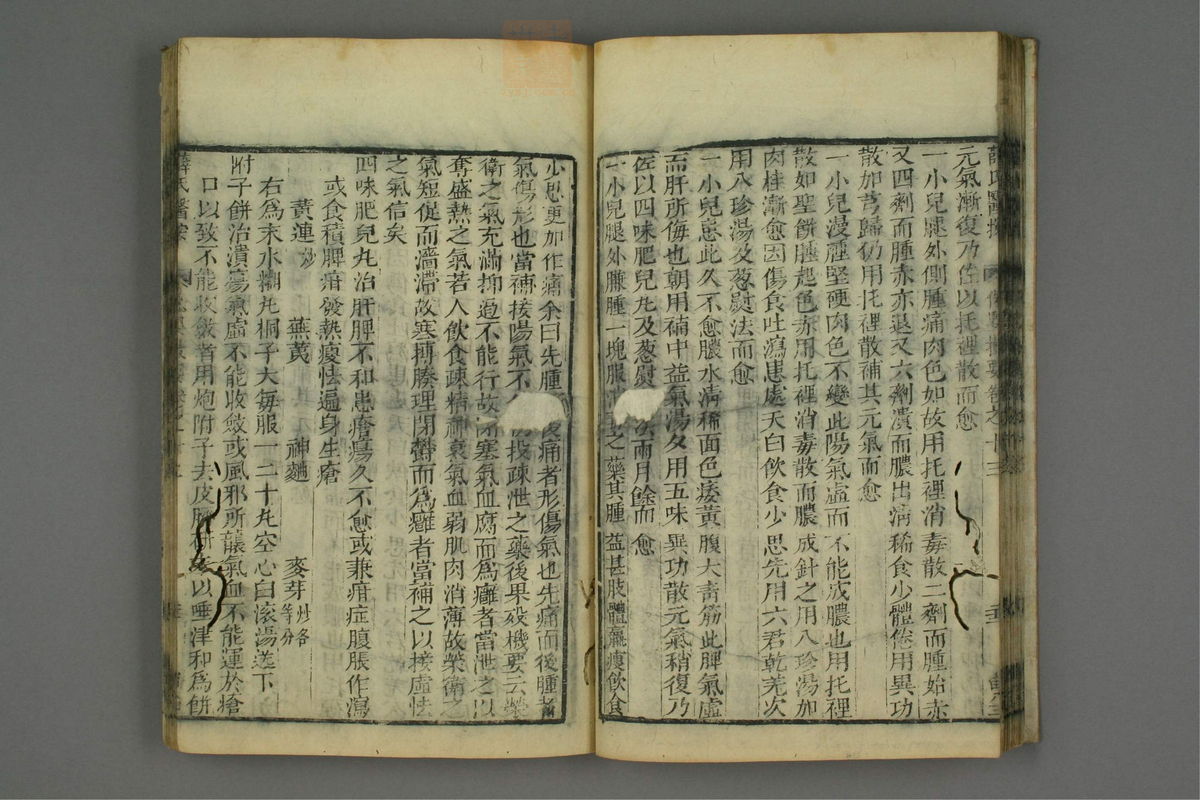 元氣漸復乃佐以托裡散而愈
一小兒腿外側腫痛肉色如故用托裡消毒散二劑而腫始赤
又四劑而腫赤亦退又六劑潰而膿出淸稀食少體倦用異功
散加芎歸仍用托裡散補其元氣而愈
一小兒漫腫堅硬肉色不變此陽氣虛而不能成膿也用托裡
散如聖餠腫起色赤用托裡消毒散而膿成針之用八珍湯加
肉桂漸愈因傷食吐瀉患處夭白飮食少思先用六君乾羌次
用八珍湯及葱熨法而愈
一小兒患此久不愈膿水淸稀面色痿黃腹大靑筋此脾氣虛
而肝所侮也朝用補中益氣湯夕用五味異功散元氣稍復乃
佐以四味肥兒丸及葱熨 兩月餘而愈
一小兒腿外臁腫一塊服 之藥其腫益甚肢體羸瘦飮食
少思更加作痛余曰先腫 後痛者形傷氣也先痛而後腫者
氣傷形也當補接陽氣不 投疎泄之藥後果歿機要云榮
衛之氣充滿抑遏不能行故閉塞氣血腐而爲癰者當泄之以
奪盛熱之氣若人飮食疎精神衰氣血弱肌肉消薄故榮衛之
氣短促而濇滯故寒搏腠理閉鬱而爲癰者當補之以接虛怯
之氣信矣
四味肥兒丸治肝脾不和患瘡瘍久不愈或兼疳症腹脹作瀉
或食積脾疳發熱瘦怯遍身生瘡
黃連炒 蕪荑 神麯 麥芽炒各等分
右爲末水糊丸桐子大每服一二十丸空心白滾湯送下
附子餠治潰瘍氣虛不能收斂或風邪所襲氣血不能運於瘡
口以致不能收斂者用炮附子去皮臍 以唾津和爲餠
薛氏醫按